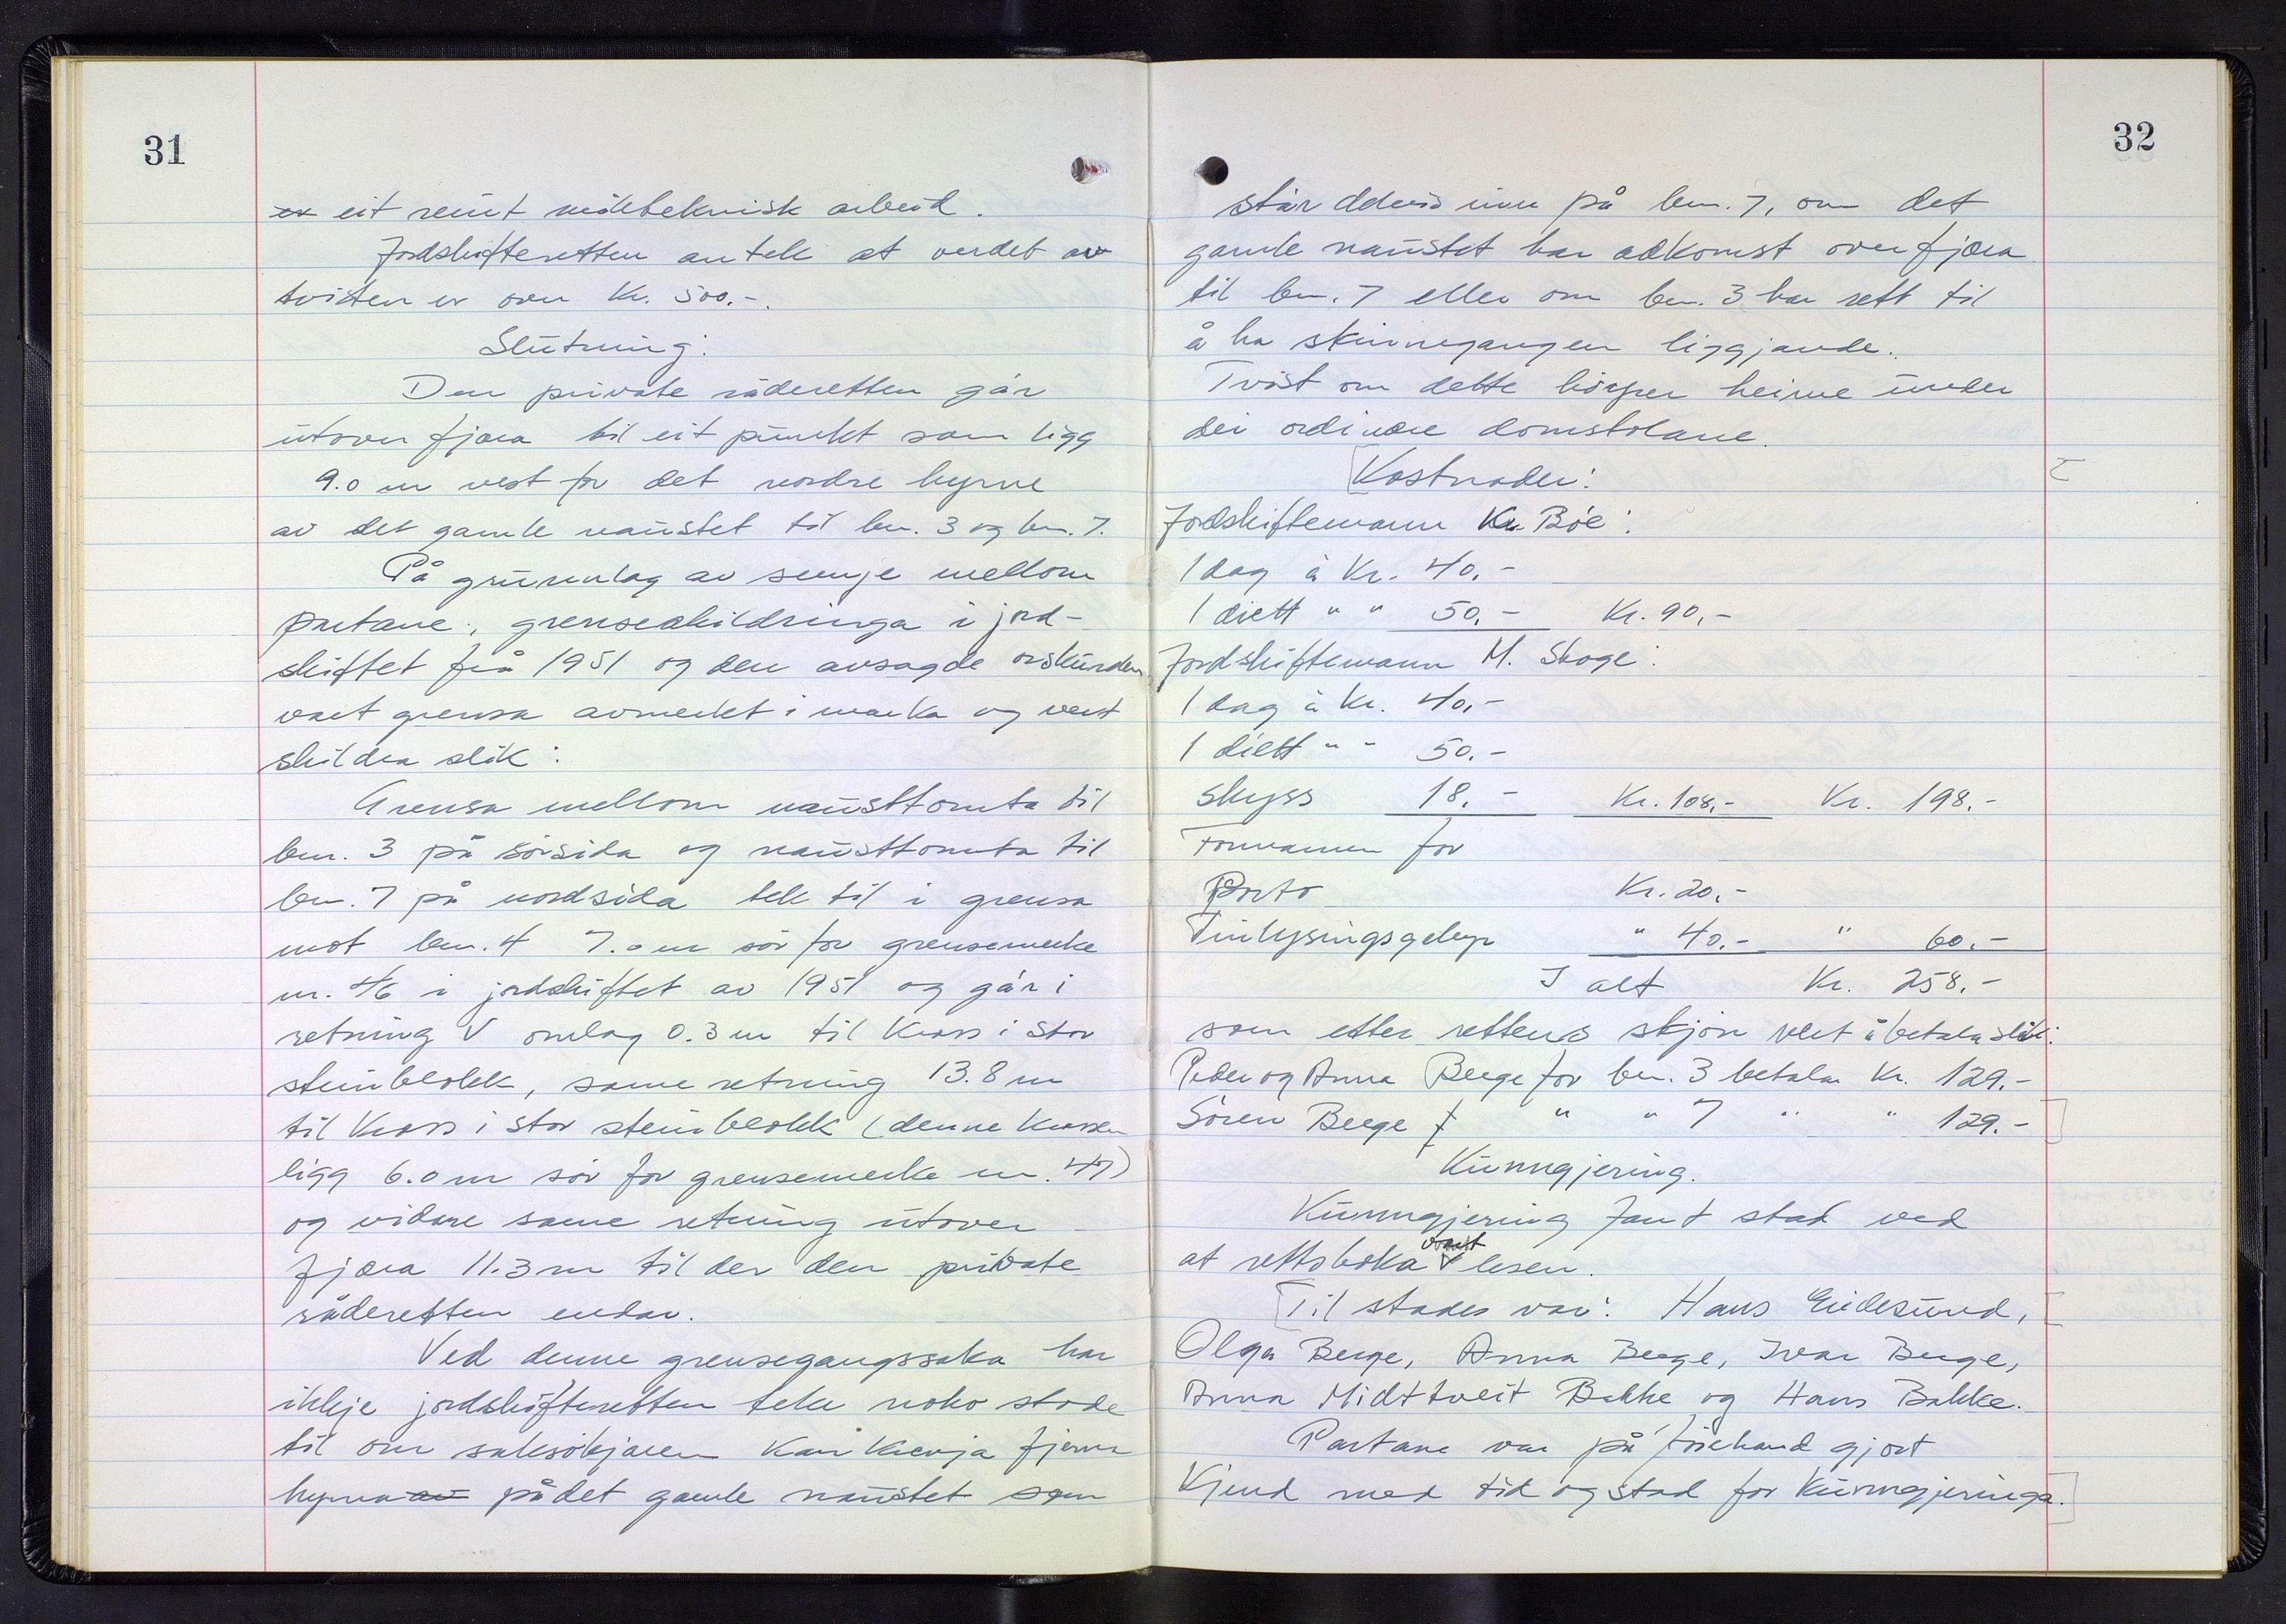 31
er eit reint måleteknisk arbeid.
Jordskifteretten antek at verdet av
tvisten er over kr. 500.-.
Slutning:
Den private råderetten går
utover fjæra til eit punkt som ligg
9.0 m vest for det nordre hyrne
av det gamle naustet til bnr. 3 og bnr. 7.
På grunnlag av semje mellom
partane, grenseskildringa i jord-
skiftet frå 1951 og den avsagde orskurden
vart grensa avmerket i marka og vert
skildra slik:
Grensa mellom nausttomta til
bnr. 3 på sørsida og nausttomta til
bnr. 7 på nordsida tek til i grensa
mot bnr. 4 7.0 m sør for grensemerke
nr. 46 i jordskiftet av 1951 og går i
retning V omlag 0.3 m til kross i stor
steinblokk, same retning 13.8 m
til kross i stor steinblokk (denne krossen
ligg 6.0 m sør for grensemerke nr. 47)
og vidare same retning utover
fjæra 11.3 m til der den private
råderetten endar.
Ved denne grensegangssaka har
ikkje jordskifteretten teke noko stode
til om saksøkjaren kan krevja fjerna
hyrna av på det gamle naustet som
32
står delvis inn på bnr. 7, om det
gamle naustet har adkomst over fjæra
til bnr. 7 eller om bnr. 3 har rett til
å ha skinnegangen liggjande.
Tvist om dette høyrer heime under
dei ordinære domstolane.
Kostnader:
Jordskiftemann Kr. Bøe:
1 dag à Kr. 40.-
1 diett " " 50.- Kr. 90.-
Jordskiftemann M. Skoge:
1 dag à Kr. 40.-
1 diett " " 50.-
Skyss 18.- Kr. 108.- Kr. 198.-
Formannen for
Porto Kr. 20.-
Tinlysingsgebyr " 40.- " 60.-
I alt Kr. 258.-
som etter rettens skjøn vert å betala slik:
Peder og Anna Berge for bnr. 3 betalar Kr. 129.-
Søren Berge f " " 7 " " 129.-
Kunngjering.
Kunngjering fant stad ved
at rettsboka vart lesen.
Til stades var: Hans Eidesund,
Olga Berge, Anna Berge, Ivar Berge,
Anna Midttveit Bakke og Hans Bakke.
Partane var på førehand gjort
kjend med tid og stad for kunngjeringa.